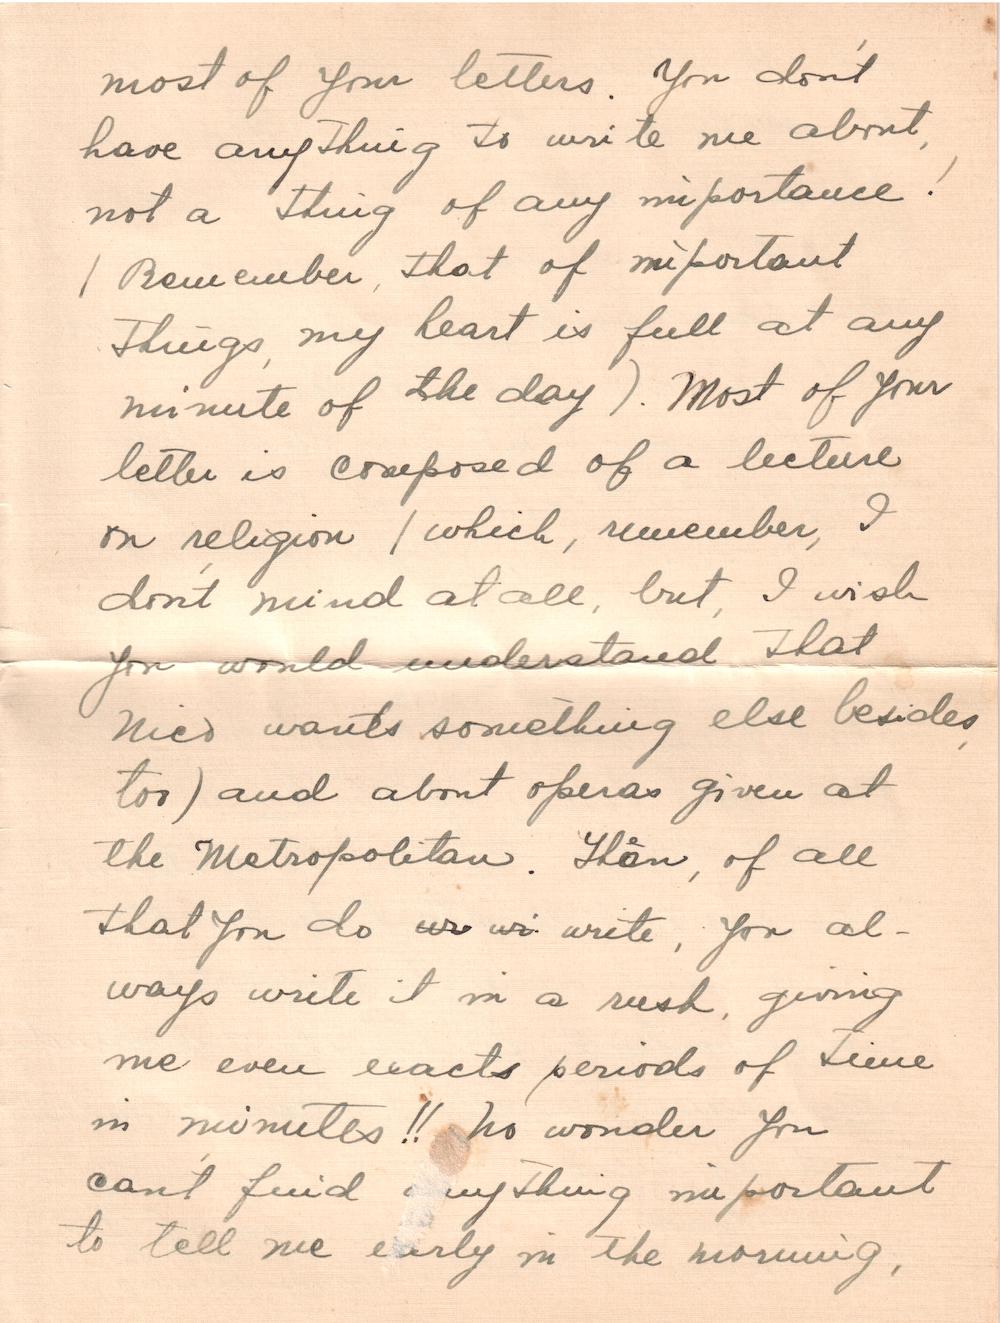 most of your letters. You don't
have anything to write me about,
not a thing of any importance!
(Remember, that of important
things, my heart is full at any
minute of the day). Most of your
letter is composed of a lecture
on religion (which, remember, I
don't mind at all, but, I wish
you would understand that
Nico wants something else besides,
too) and about operas given at
the Metropolitan. Then, of all
that you do wr wi write, you al-
ways write it in a rush, giving
me even exacts periods of time
in minutes!! No wonder you
can't find anything important
to tell me early in the morning,